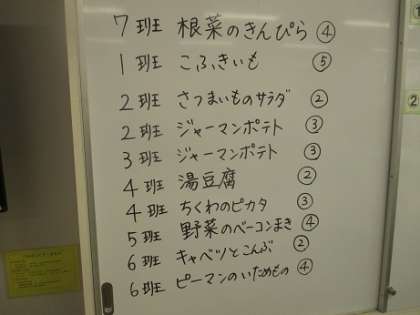 7班 根菜のきんぴら ④
1班 こふきいも ⑤
2班 さつまいものサラダ ②
2班 ジャーマンポテト ③
3班 ジャーマンポテト ③
4班 湯豆腐 ②
4班 ちくわのピカタ ③
5班 野菜のベーコンまき ④
6班 キャベツとこんぶ ②
6班 ピーマンのいためもの ④
①
②